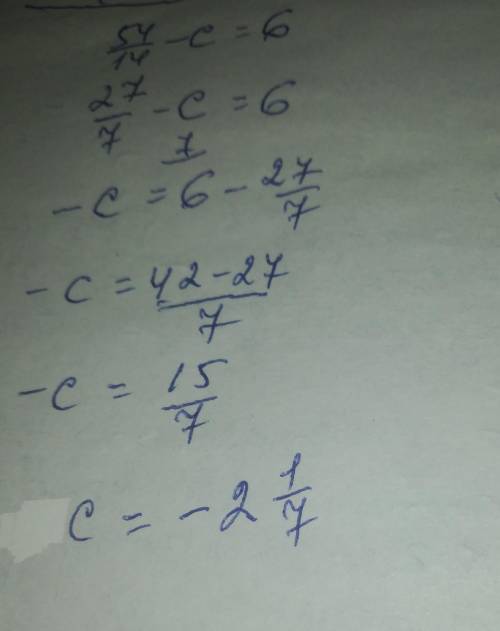 54/14 - c = 6
27/7 - c = 6
-c = 6 - 27/7
-c = (42-27)/7
-c = 15/7
c = -2 1/7